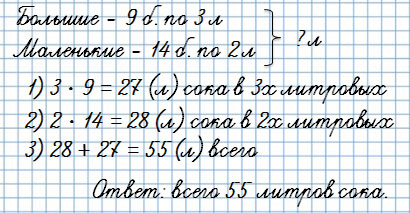 Большие – 9 б. по 3 л
Маленькие – 14 б. по 2 л } ? л
1) 3 · 9 = 27 (л) сока в 3х литровых
2) 2 · 14 = 28 (л) сока в 2х литровых
3) 28 + 27 = 55 (л) всего
Ответ: всего 55 литров сока.